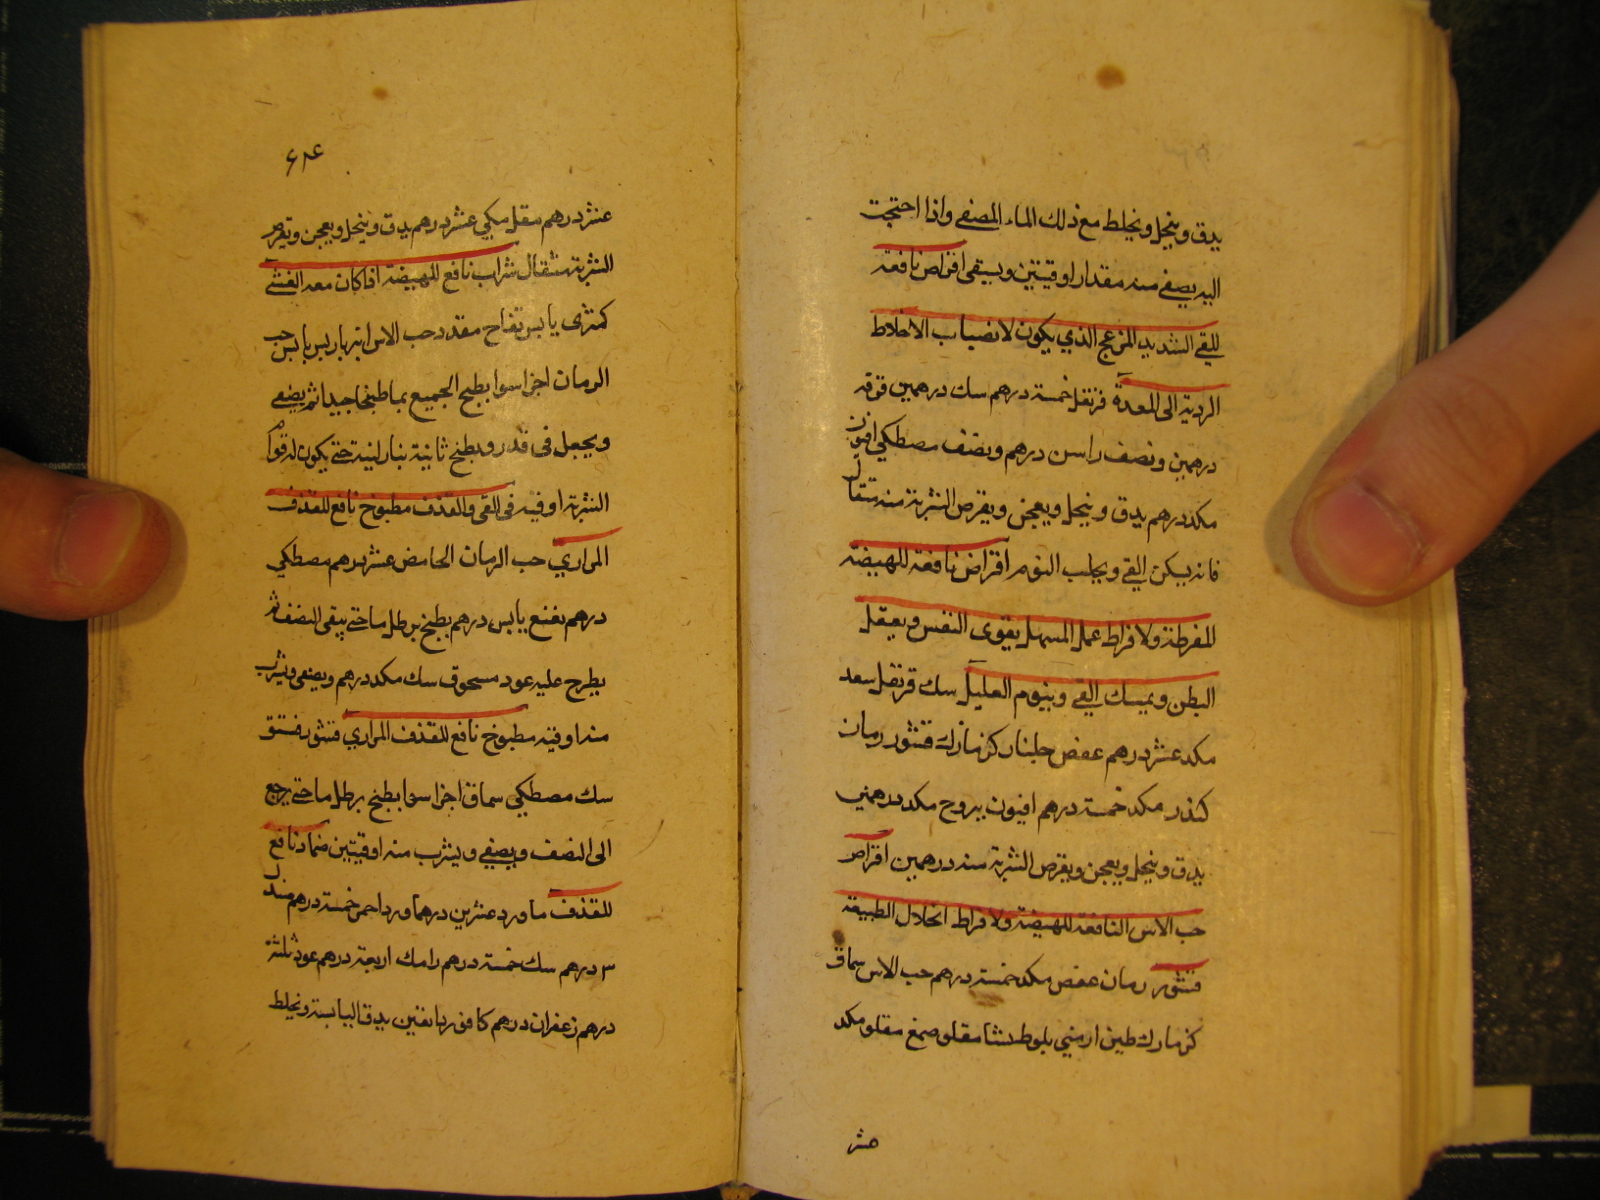 يدق وينخل ويخلط مع ذلك الماء المصفى واذا احتجت
اليه يصفى منه مقدار اوقيتين ويسقى اقراص نافعة
للقي الشديد المزعج الذي يكون لانضباب الاخلاط
الردية الى المعدة قرنفل خمسة درهم سك درهمين قرفه
درهمين ونصف راسن درهم ونصف مصطكي افيون
مكد درهم يدق وينخل ويعجن ويقرص الشربة منه مثقال
فانه يسكن القي ويجلب النوم اقراص نافعة للهيضة
المفرطة ولافراط عمل المسهل يقوى النفس ويعقل
البطن ويمسك القي وينوم العليل سك قرنفل سعد
مكد عشر درهم عفص جلنار كزمازك قشور رمان
كندر مكد خمسة درهم افيون يبروح مكد درهمين
يدق وينخل ويعجن ويقرص الشربة منه درهمين اقراص
حب الاس النافعة للهيضة ولافراط انحلال الطبيعة
قشور رمان عفص مكد خمسة درهم حب الاس سماق
كزمازك طين ارمني بلوط نشا مقلو صمغ مقلو مكد
عشر
٤٢٤
عشر درهم مقل مكي عشر درهم يدق وينخل ويعجن ويقرص
الشربة مثقال شراب نافع للهيضة اذا كان معه الغشي
كمثرى يابس تفاح مقدد حب الاس انبرباريس يابس حب
الرمان اجزا سوا يطبخ الجميع بما طبخا جيدا ثم يصفى
ويجعل في قدر ويطبخ ثانية بنار لينة حتى يكون له قوام
الشربة اوقيه في القي والقذف مطبوخ نافع للقذف
المراري حب الرمان الحامض عشر درهم مصطكي
درهم نعنع يابس درهم يطبخ برطل ما حتى يبقى النصف ثم
يطرح عليه عود مسحوق سك مكد درهم ويصفى ويشرب
منه اوقيه مطبوخ نافع للقذف المراري قشور فستق
سك مصطكي سماق اجزا سوا يطبخ برطل ما حتى يرجع
الى النصف ويصفى ويشرب منه اوقيتين ضماد نافع
للقذف ماورد عشرين درهما ورد احمر خمسة درهم صندل
٣ درهم سك خمسة درهم رامك اربعة درهم عود ثلثة
درهم زعفران درهم كافور دانقين يدق اليابسة ويخلط